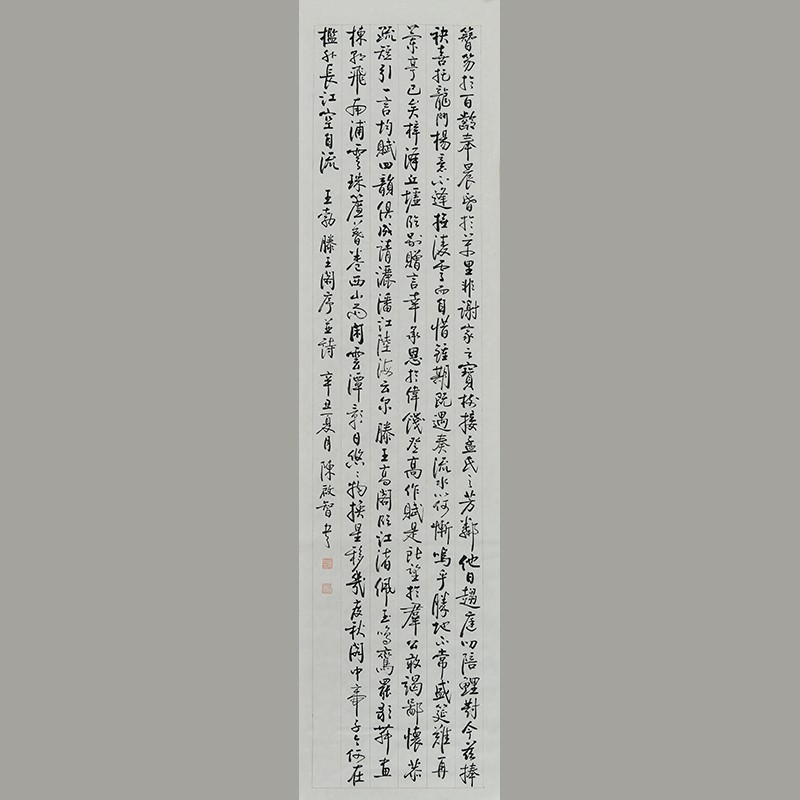 簪笏於百齡奉晨昏於萬里非謝家之寶樹接孟氏之芳鄰他日趨庭叨陪鯉對今茲捧
袂喜托龍門楊意不逢撫淩雲而自惜鍾期既遇奏流水以何慚嗚乎勝地不常盛筵難再
蘭亭已矣梓澤丘墟臨別贈言幸承恩於偉餞登高作賦是所望於群公敢竭鄙懷恭
疏短引一言均賦四韻俱成請灑潘江陸海云尔滕王高閣臨江渚佩玉鳴鸞罷歌舞畫
棟朝飛南浦雲珠簾暮卷西山雨閑雲潭影日悠悠物換星移幾度秋閣中帝子今何在
檻外長江空自流 王勃滕王閣序並詩 辛丑夏月陳啟智書